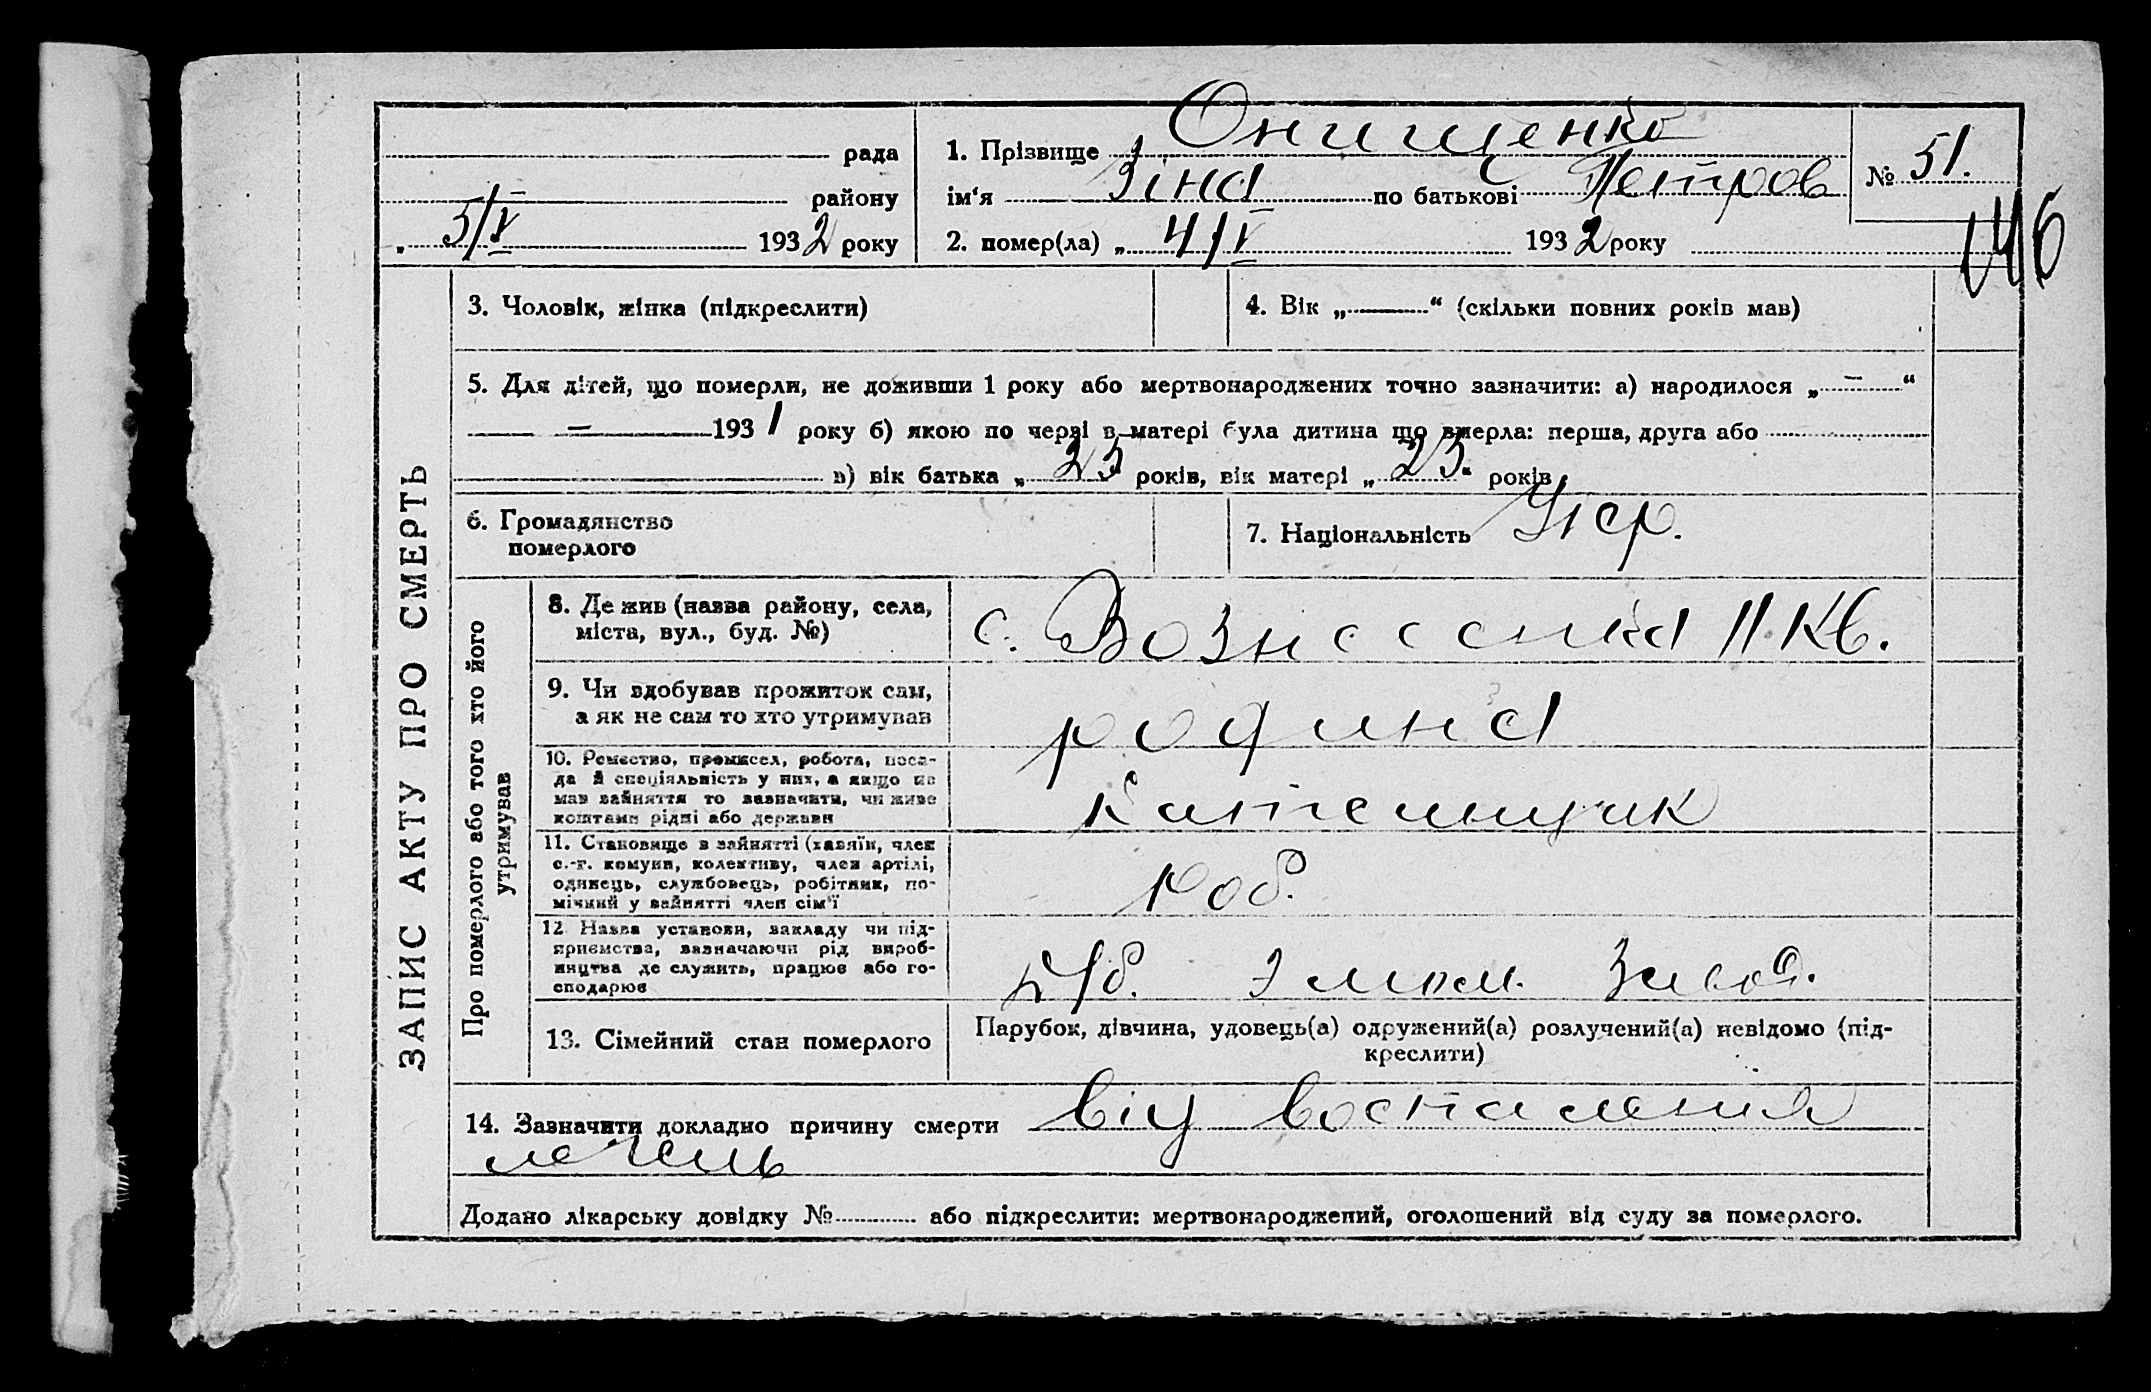 рада
району
„ 5/V 1932 року
1. Прізвище Онищенко
ім‘я Зіна по батькові Петров
2. помер(ла) „ 4/V 1932 року
№ 51.
146
ЗАПИС АКТУ ПРО СМЕРТЬ
3. Чоловік, жінка (підкреслити)
4. Вік „ “ (скільки повних років мав)
5. Для дітей, що померли, не доживши 1 року або мертвонароджених точно зазначити: а) народилося „ — “
— 1931 року б) якою по черзі в матері була дитина що вмерла: перша, друга або
в) вік батька „ 23 років, вік матері „ 23 “ років
6. Громадянство
померлого
7. Національність Укр.
Про померлого або того хто його
утримував
8. Де жив (назва району, села,
міста, вул., буд. №)
с. Вознесенка 11 Кв.
9. Чи здобував прожиток сам,
а як не сам то хто утримував
родина
10. Ремество, промисел, робота, поса-
да й спеціяльність у них, а якщо не
мав зайняття то зазначити, чи живе
коштами рідні або держави
11. Становище в зайнятті (хазяїн, член
с.-г. комуни, колективу, член артілі,
одинець, службовець, робітник, по-
мічний у зайнятті член сім'ї
Роб.
12. Назва установи, закладу чи під-
приємства, зазначаючи рід вироб-
ництва де служить, працює або го-
сподарює
13. Сімейний стан померлого
Парубок, дівчина, удовець(а) одружений(а) розлучений(а) невідомо (під-
креслити)
14. Зазначити докладно причину смерти від воспаления
легень
Додано лікарську довідку № або підкреслити: мертвонароджений, оголошений від суду за померлого.